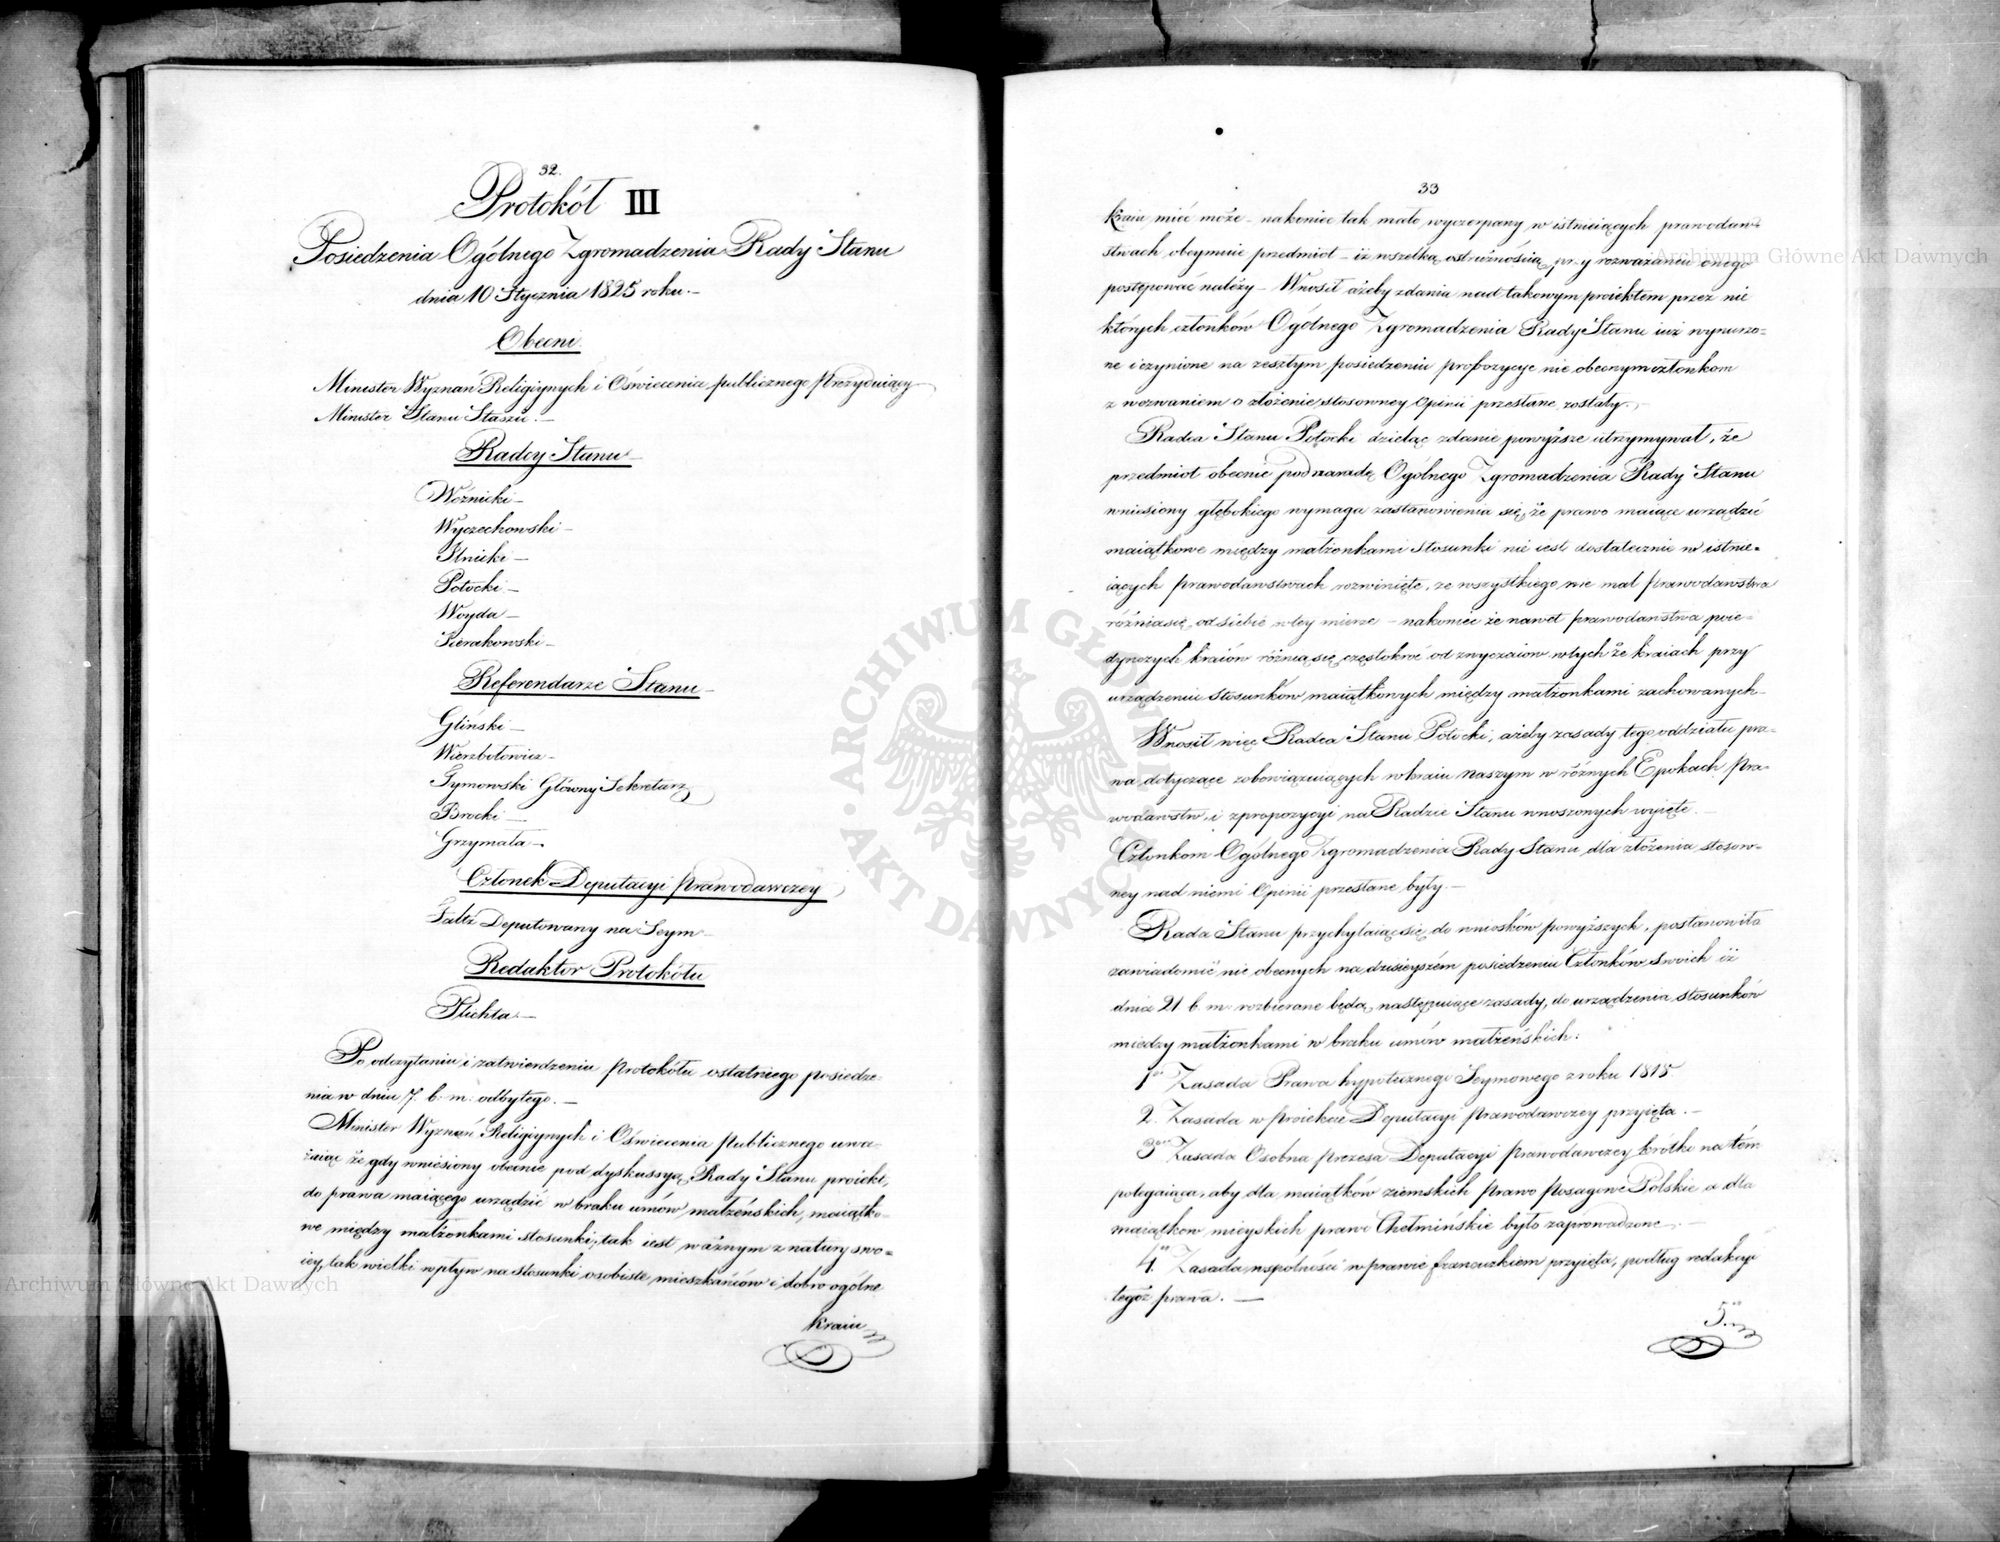 32.
Protokół III
Posiedzenia Ogólnego Zgromadzenia Rady Stanu
dnia 10 Stycznia 1825 roku.
Obecni.
Minister Wyznań Religiynych i Oświecenia publicznego Prezyduiący
Minister Stanu Staszic.
Radcy Stanu
Woźnicki
Wyczechowski
Ilnicki
Potocki
Woyda
Sierakowski
Referendarze Stanu
Gliński
Wierzbołowicz
Tymowski Główny Sekretarz
Brocki
Grzymała
Członek Deputacyi Prawodawczey
Faltz Deputowany na Seym
Redaktor Protokółu
Plichta
Po odczytaniu i zatwierdzeniu Protokółu ostatniego posiedze-
nia w dniu 7. b. m. odbytego.
Minister Wyznań Religiynych i Oświecenia Publicznego uwa-
żaiąc że gdy wniesiony obecnie pod dyskussyą Rady Stanu proiekt,
do prawa maiącego urządzić w braku umów małżeńskich, maiątko-
we między małżonkami stosunki, tak iest ważnym z natury swo-
iey, tak wielki wpływ na stosunki osobiste mieszkańców i dobro ogólne
kraiu
33
kraiu mieć może - nakoniec tak mało wyczerpany w istnieiących prawodaw-
stwach obeymuie przedmiot - iż wszelką ostrożnością przy rozważaniu onego
postępować należy - Wnosił ażeby zdania nad takowym proiektem przez nie
których członków Ogólnego Zgromadzenia Rady Stanu iuż wynurzo-
ne i czynione na zeszłym posiedzeniu propozycye nie obecnym członkom
z wezwaniem o złożenie stosowney Opinii przesłane zostały.
Radca Stanu Potocki dzieląc zdanie powyższe utrzymywał, że
przedmiot obecnie pod naradę Ogólnego Zgromadzenia Rady Stanu
wniesiony głębokiego wymaga zastanowienia się, że prawo maiące urządzić
maiątkowe między małżonkami stosunki nie iest dostatecznie w istnie-
iących prawodawstwach rozwinięte, że wszystkiego nie mal prawodawstwa
różnią się od siebie w tey mierze - nakoniec że nawet prawodawstwa poie-
dynczych kraiów różnią się częstokroć od zwyczaiów w tych że kraiach przy
urządzeniu stosunków maiątkowych między małżonkami zachowanych
Wnosił więc Radca Stanu Potocki, ażeby zasady tego oddziału pra-
wa dotyczące z obowiązuiących w kraiu naszym w różnych Epokach Pra-
wodawstw i z propozycyi na Radzie Stanu wnoszonych wyięte
Członkom Ogólnego Zgromadzenia Rady Stanu dla złożenia stosow-
ney nad niemi Opinii przesłane były.
Rada Stanu przychylaiąc się do wniosków powyższych, postanowiła
zawiadomić nie obecnych na dzisieyszém posiedzeniu Członków Swoich iż
dnia 21 b. m. rozbierane będą następuiące zasady, do urządzenia stosunków
między małżonkami w braku umów małżeńskich:
1º Zasada Prawa hypotecznego Seymowego z roku 1818.
2. Zasada w proiekcie Deputacyi Prawodawczey przyięta.
3º Zasada Osobna Prezesa Deputacyi Prawodawczey krótko na tém
polegaiąca, aby dla maiątków ziemskich Prawo Posagowe Polskie a dla
maiątkow mieyskich prawo Chełmińskie było zaprowadzone
4º Zasada wspolności w prawie francuzkiem przyięta, podług redakcyi
tegoż prawa.
5º
ARCHIWUM GŁÓWNE AKT DAWNYCH
Archiwum Główne Akt Dawnych
Archiwum Główne Akt Dawnych